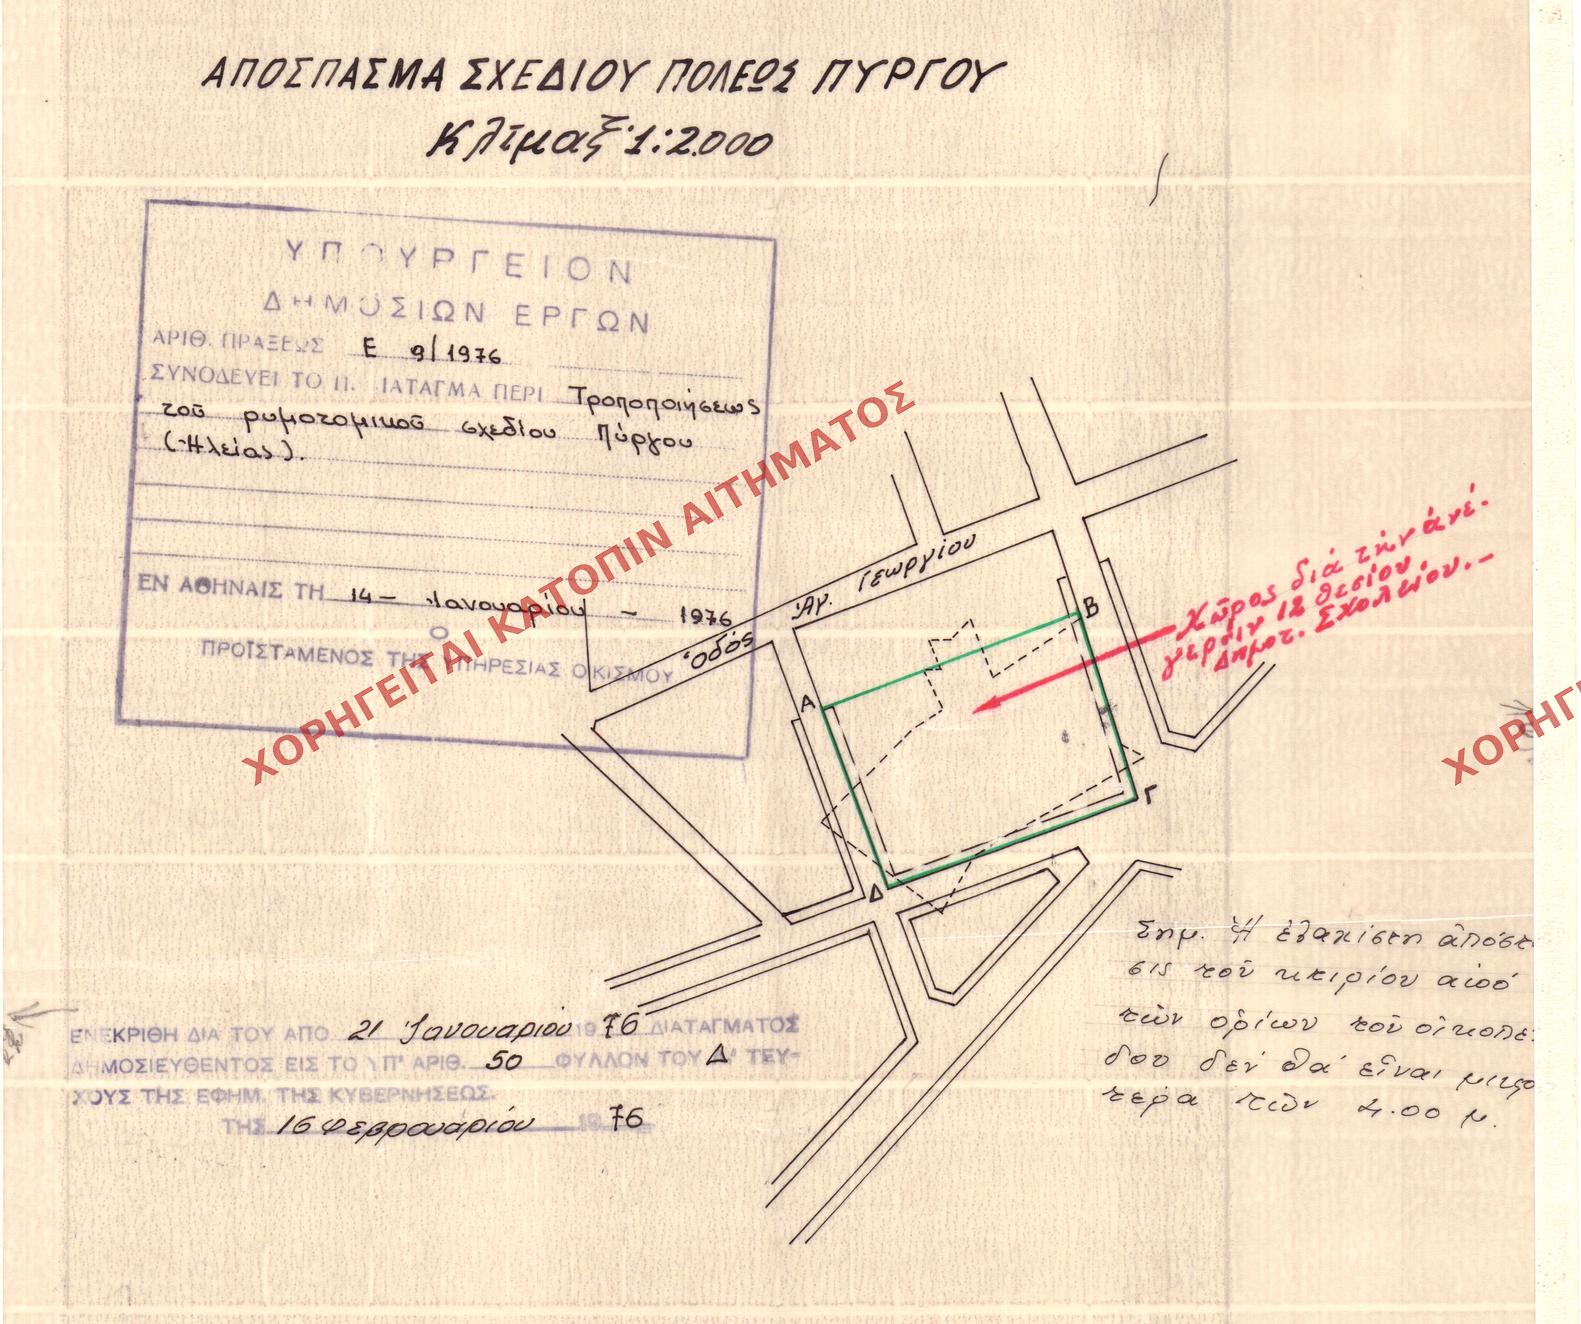 ΑΠΟΣΠΑΣΜΑ ΣΧΕΔΙΟΥ ΠΟΛΕΩΣ ΠΥΡΓΟΥ
Κλῖμαξ 1:2.000
ΥΠΟΥΡΓΕΙΟΝ
ΔΗΜΟΣΙΩΝ ΕΡΓΩΝ
ΑΡΙΘ. ΠΡΑΞΕΩΣ Ε 9/1976
ΣΥΝΟΔΕΥΕΙ ΤΟ Π. ΔΙΑΤΑΓΜΑ ΠΕΡΙ Τροποποιήσεως
τοῦ ρυμοτομικοῦ σχεδίου Πύργου
(Ἠλείας).
ΕΝ ΑΘΗΝΑΙΣ ΤΗ 14 - Ἰανουαρίου - 1976
Ο
ΠΡΟΪΣΤΑΜΕΝΟΣ ΤΗΣ ΥΠΗΡΕΣΙΑΣ ΟΙΚΙΣΜΟΥ
ΧΟΡΗΓΕΙΤΑΙ ΚΑΤΟΠΙΝ ΑΙΤΗΜΑΤΟΣ
ΧΟΡΗΓΕ
Ὁδός Ἁγ. Γεωργίου
Α
Β
Γ
Δ
Χῶρος διά τήν ἀνέ-
γερσιν 12 θεσίου
Δημοτ. Σχολείου.-
Σημ. Ἡ ἐλαχίστη ἀπόστα
σις τοῦ κτιρίου ἀπό
τῶν ὁρίων τοῦ οἰκοπέ
δου δέν θά εἶναι μικρο
τέρα τῶν 4.00 μ.
ΕΝΕΚΡΙΘΗ ΔΙΑ ΤΟΥ ΑΠΟ 21 Ἰανουαρίου 1976 ΔΙΑΤΑΓΜΑΤΟΣ
ΔΗΜΟΣΙΕΥΘΕΝΤΟΣ ΕΙΣ ΤΟ ΥΠ' ΑΡΙΘ. 50 ΦΥΛΛΟΝ ΤΟΥ Δ' ΤΕΥ-
ΧΟΥΣ ΤΗΣ ΕΦΗΜ. ΤΗΣ ΚΥΒΕΡΝΗΣΕΩΣ.
ΤΗΣ 16 Φεβρουαρίου 1976